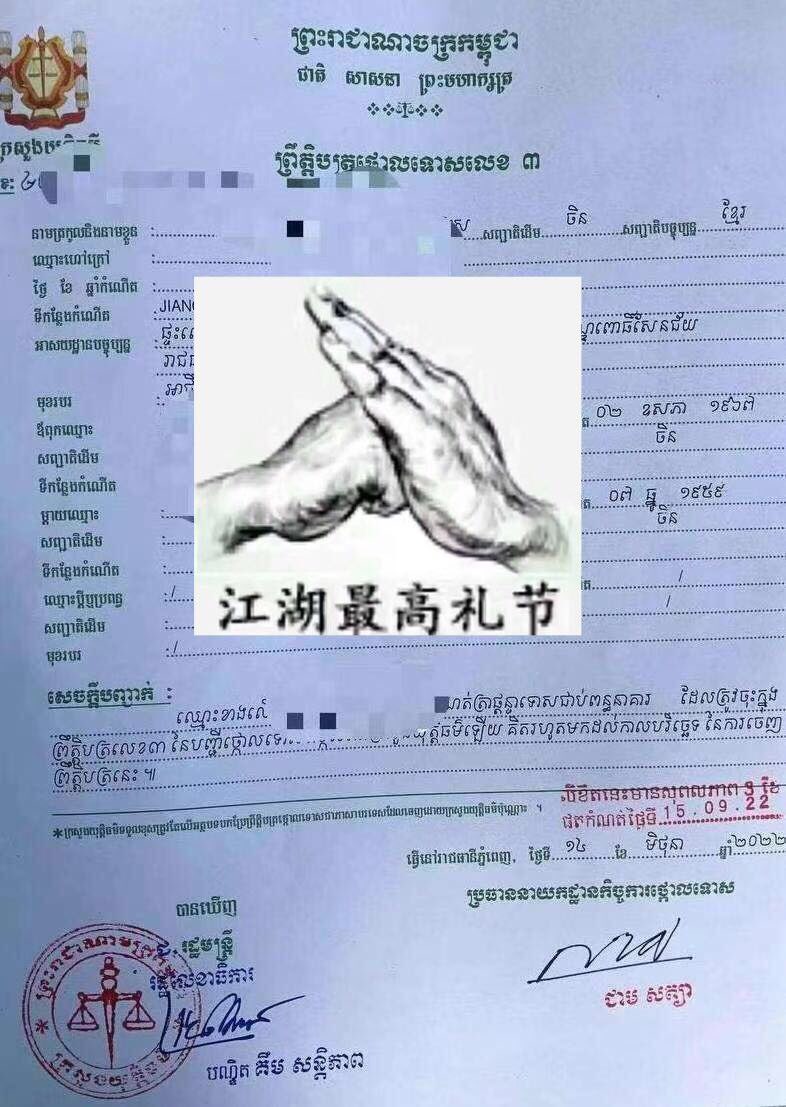 ព្រះរាជាណាចក្រកម្ពុជា
ជាតិ សាសនា ព្រះមហាក្សត្រ
ក្រសួងយុត្តិធម៌
ព្រឹត្តិបត្រថ្កោលទោសលេខ ៣
នាមត្រកូលនិងនាមខ្លួន : សញ្ជាតិដើម ចិន សញ្ជាតិបច្ចុប្បន្ន ខ្មែរ
ឈ្មោះហៅក្រៅ :
ថ្ងៃ ខែ ឆ្នាំកំណើត :
ទីកន្លែងកំណើត : JIANG
អាសយដ្ឋានបច្ចុប្បន្ន : ផ្ទះ ពោធិ៍សែនជ័យ
រាជ
មុខរបរ :
ឪពុកឈ្មោះ ០២ ឧសភា ១៩៦៧
សញ្ជាតិដើម ចិន
ទីកន្លែងកំណើត
ម្តាយឈ្មោះ ០៧ ធ្នូ ១៩៥៩
សញ្ជាតិដើម ចិន
ទីកន្លែងកំណើត
ឈ្មោះប្តីឬប្រពន្ធ : / /
សញ្ជាតិដើម /
មុខរបរ : /
江湖最高礼节
សេចក្តីបញ្ជាក់ :
ឈ្មោះខាងលើ ផ្តន្ទាទោសដាក់ពន្ធនាគារ ដែលត្រូវចុះក្នុង
ព្រឹត្តិបត្រលេខ៣ នៃបញ្ជីថ្កោលទោស យុត្តិធម៌ឡើយ គិតរហូតមកដល់កាលបរិច្ឆេទ នៃការចេញ
ព្រឹត្តិបត្រនេះ ៕
*ក្រសួងយុត្តិធម៌ទទួលខុសត្រូវតែលើអត្ថបទបកប្រែព្រឹត្តិបត្រថ្កោលទោសជាភាសាបរទេសដែលចេញដោយក្រសួងយុត្តិធម៌ប៉ុណ្ណោះ ។
លិខិតនេះមានសុពលភាព 3 ខែ
ផុតកំណត់ថ្ងៃទី 15.09.22
ធ្វើនៅរាជធានីភ្នំពេញ, ថ្ងៃទី ១៤ ខែ មិថុនា ឆ្នាំ២០២២
ប្រធាននាយកដ្ឋានកិច្ចការថ្កោលទោស
បានឃើញ
រដ្ឋមន្ត្រី
រដ្ឋលេខាធិការ
ជាម សត្យា
បណ្ឌិត គឹម សន្តិភាព
ព្រះរាជាណាចក្រ
ក្រសួងយុត្តិធម៌